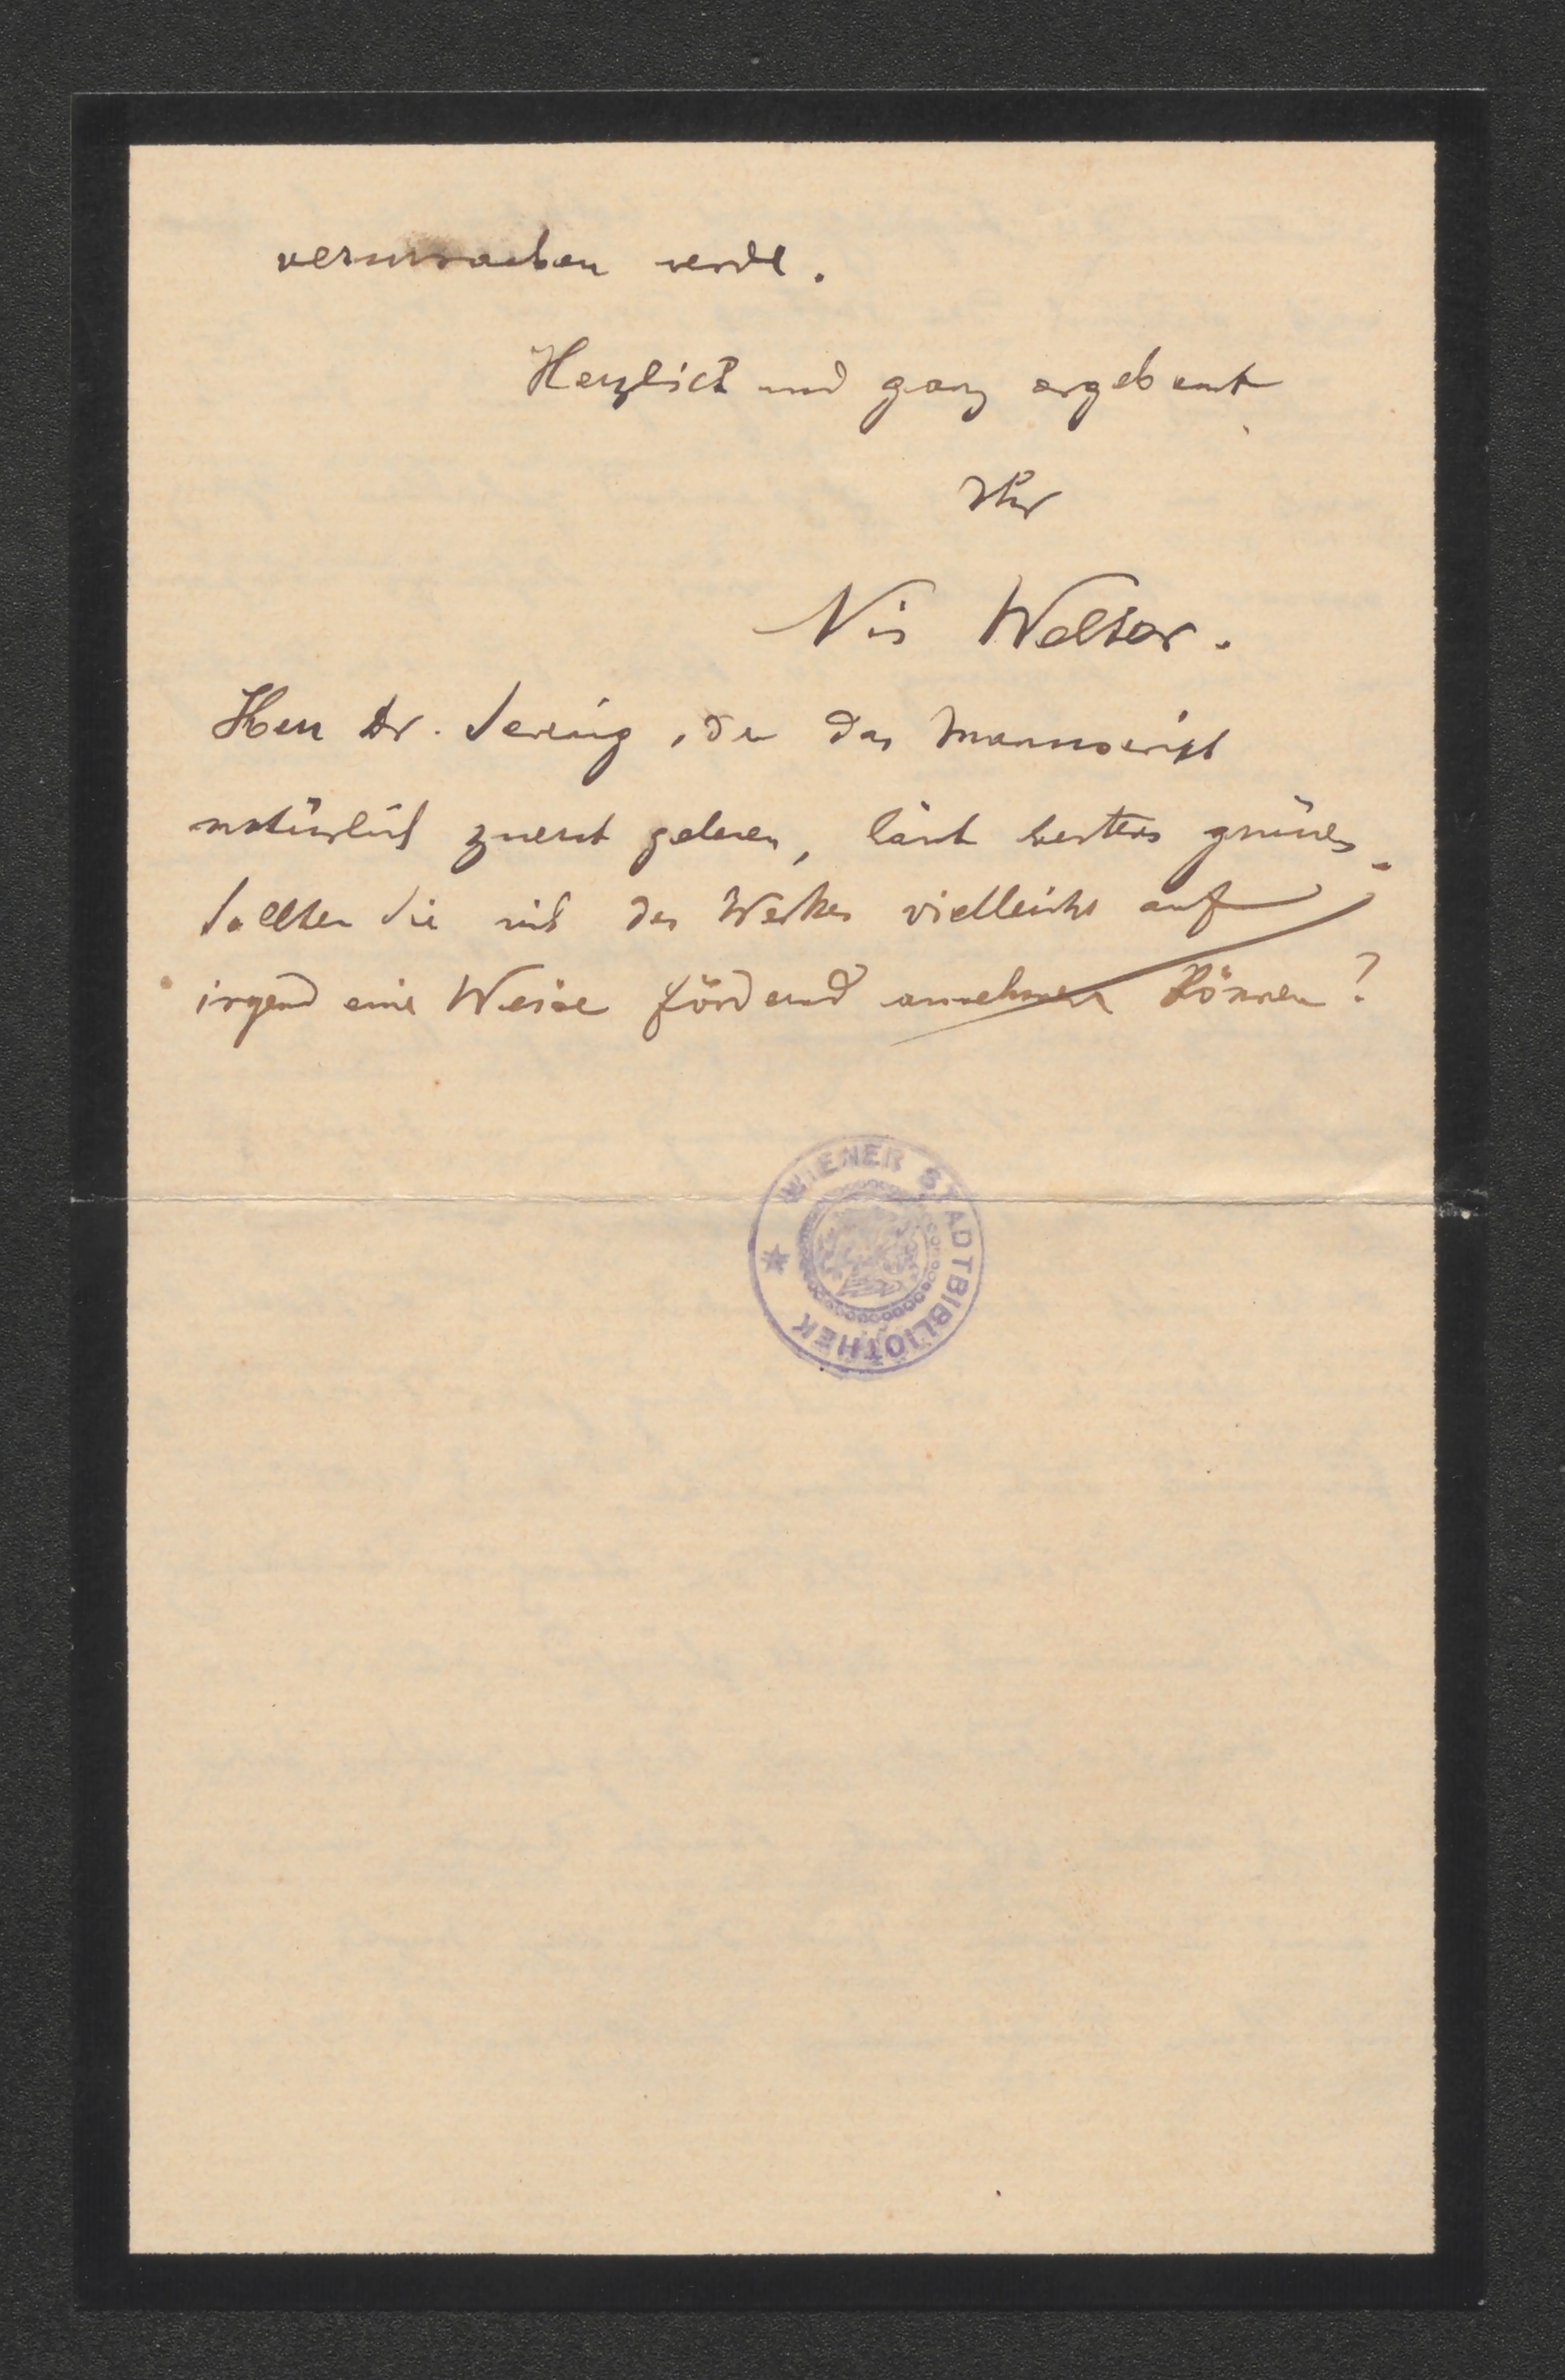 verursachen werde.
Herzlich und ganz ergebenst
Ihr
Nis Welter.
Herr Dr. Sering, der das Manuscript
natürlich zuerst gelesen, lässt bestens grüssen.
Sollten Sie sich des Werkes vielleicht auf
irgend eine Weise fördernd annehmen können?
WIENER STADTBIBLIOTHEK